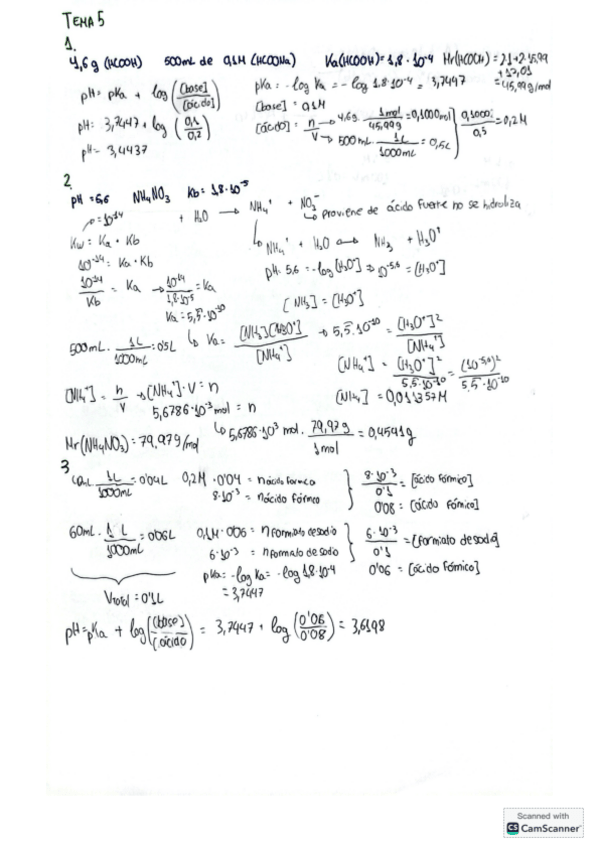 TEMA 5
1.
4,6 g (HCOOH) 500mL de 0,1M (HCOONa) Ka(HCOOH)=1,8·10⁻⁴ Mr(HCOOH)=2·1+2·15,99
+12,01
=45,99g/mol
pH= pKa + log([base]/[ácido]) pKa = -log Ka = -log 1,8·10⁻⁴ = 3,7447
[base] = 0,1M
pH= 3,7447 + log(0,1/0,2) [ácido] = n/V → 4,6g · 1mol/45,99g = 0,1000mol } 0,1000/0,5 = 0,2M
→ 500mL · 1L/1000mL = 0,5L
pH= 3,4437
2.
pH = 5,6 NH₄NO₃ Kb = 1,8·10⁻⁵
+ H₂O → NH₄⁺ + NO₃⁻
→ proviene de ácido fuerte no se hidroliza
10⁻¹⁴
Kw = Ka · Kb
↳ NH₄⁺ + H₂O ↔ NH₃ + H₃O⁺
10⁻¹⁴ = Ka · Kb
pH = 5,6 = -log[H₃O⁺] ⇒ 10⁻⁵·⁶ = [H₃O⁺]
10⁻¹⁴/Kb = Ka → 10⁻¹⁴/1,8·10⁻⁵ = Ka
Ka = 5,5·10⁻¹⁰
[NH₃] = [H₃O⁺]
500mL · 1L/1000mL = 0'5L ↳ Ka = [NH₃][H₃O⁺]/[NH₄⁺] → 5,5·10⁻¹⁰ = [H₃O⁺]²/[NH₄⁺]
[NH₄⁺] = [H₃O⁺]²/5,5·10⁻¹⁰ = (10⁻⁵·⁶)²/5,5·10⁻¹⁰
[NH₄⁺] = n/V → [NH₄⁺]·V = n
[NH₄⁺] = 0,011357M
5,6786·10⁻³ mol = n
↳ 5,6786·10⁻³ mol · 79,97g/1mol = 0,4541g
Mr(NH₄NO₃) = 79,97g/mol
3
1L/1000mL = 0'04L 0,2M · 0'04 = n ácido fórmico } 8·10⁻³/0'1 = [ácido fórmico]
8·10⁻³ = n ácido fórmico
0'08 = [ácido fórmico]
60mL · 1L/1000mL = 0'06L 0,1M · 0'06 = n formiato de sodio } 6·10⁻³/0'1 = [formiato de sodio]
6·10⁻³ = n formiato de sodio
0'06 = [ácido fórmico]
pKa = -log Ka = -log 1,8·10⁻⁴
= 3,7447
Vtotal = 0'1L
pH = pKa + log([base]/[ácido]) = 3,7447 + log(0'06/0'08) = 3,6198
Scanned with
CS CamScanner